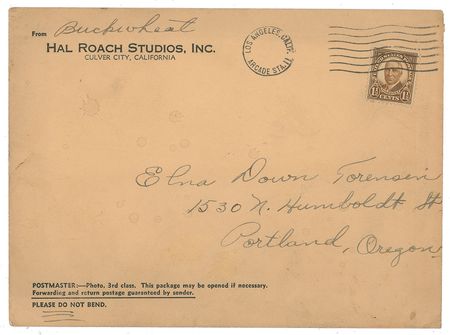 From Buckwheat
HAL ROACH STUDIOS, INC.
CULVER CITY, CALIFORNIA
LOS ANGELES, CALIF.
ARCADE STA. 11
1½ CENTS 1½
Elna Down Torensen
1530 N. Humboldt St.
Portland, Oregon
POSTMASTER:—Photo, 3rd class. This package may be opened if necessary.
Forwarding and return postage guaranteed by sender.
PLEASE DO NOT BEND.